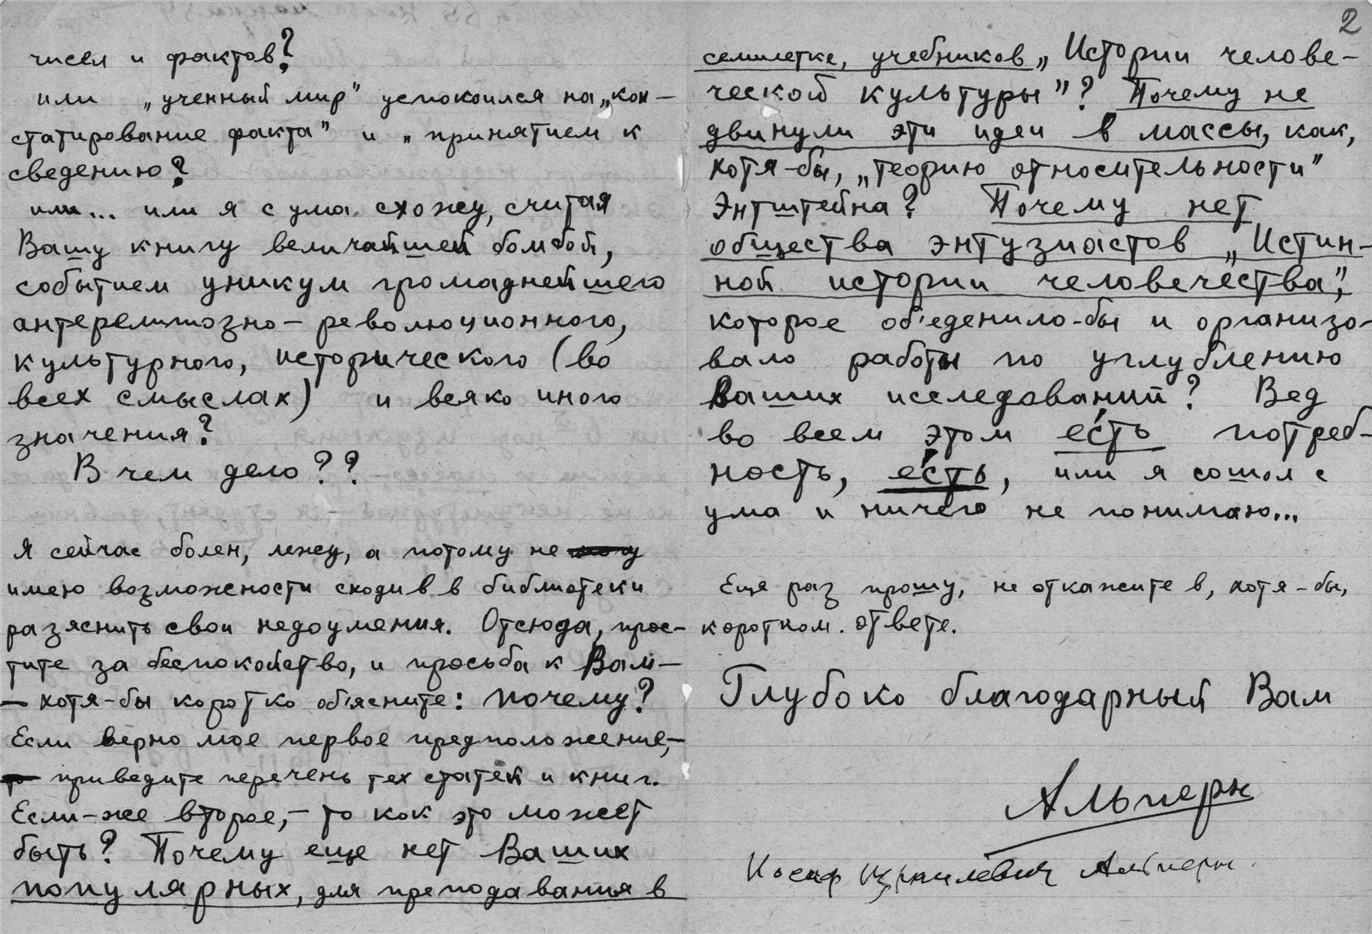 2
чисел и фактов?
или „ученный мир" успокоился на „кон-
статирование факта" и „принятием к
сведению?
или... или я с ума схожу, считая
Вашу книгу величайшей бомбой,
событием уникум громаднейшего
антерелигиозно-революционного,
культурного, исторического (во
всех смыслах) и всяко иного
значения?
В чем дело??
Я сейчас болен, лежу, а потому не могу
имею возможности сходив в библиотеки
разяснить свои недоумения. Отсюда, прос-
тите за беспокойство, и просьба к Вам-
- хотя-бы коротко об'ясните: почему?
Если верно мое первое предположение,-
приведите перечень тех статей и книг.
Если-же второе,- то как это может
быть? Почему еще нет Ваших
популярных, для преподавания в
семилетке, учебников „Истории челове-
ческой культуры"? Почему не
двинули эти идеи в массы, как,
хотя-бы, „теорию относительности"
Энтштейна? Почему нет
общества энтузиастов „Истин-
ной истории человечества",
которое об'еденило-бы и организо-
вало работы по углублению
Ваших исследований? Вед
во всем этом есть потреб-
ность, есть, или я сошол с
ума и ничего не понимаю...
Еще раз прошу, не откажите в, хотя-бы,
коротком. ответе.
Глубоко благодарный Вам
Альперн
Иосиф Альперн.